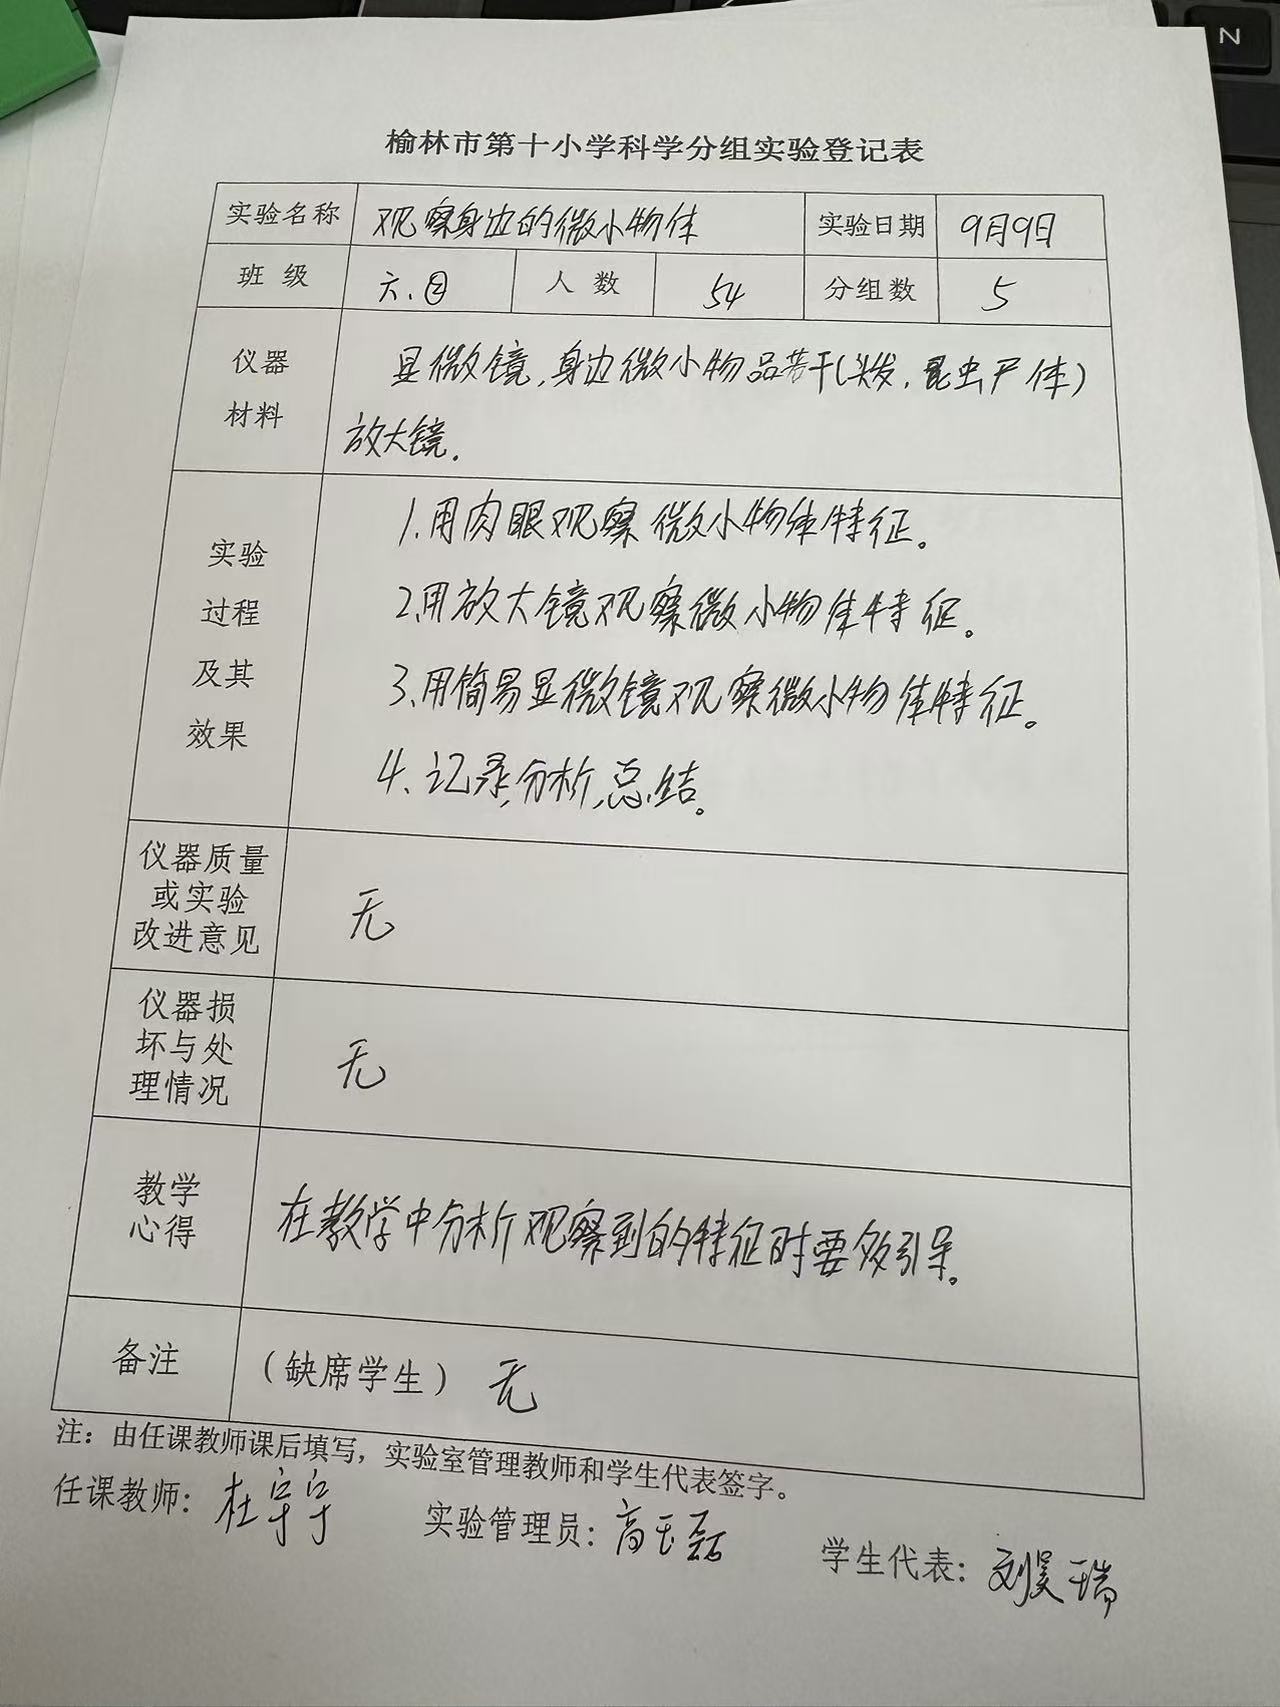 N
榆林市第十小学科学分组实验登记表
实验名称 观察身边的微小物体 实验日期 9月9日
班 级 六、 人 数 54 分组数 5
仪器
材料
显微镜,身边微小物品若干(头发,昆虫尸体)
放大镜.
实验
过程
及其
效果
1.用肉眼观察微小物体特征。
2.用放大镜观察微小物体特征。
3.用简易显微镜观察微小物体特征。
4、记录,分析,总结。
仪器质量
或实验
改进意见
无
仪器损
坏与处
理情况
无
教学
心得
在教学中分析观察到的特征时要多引导。
备注 (缺席学生) 无
注：由任课教师课后填写，实验室管理教师和学生代表签字。
任课教师：杜宇宇 实验管理员：高玉磊 学生代表：刘昊瑞